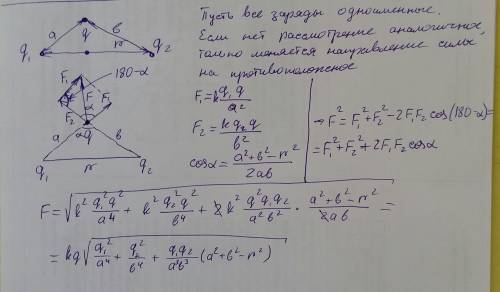 Пусть все заряды одноименные.
Если нет рассмотрение аналогичное,
только меняется направление силы
на противоположное
a q b
q₁ r q₂
F₁ 180-α
F
F₂ α F₁
a q b
q₁ r q₂
F₁=k q₁q/a²
F₂=k q₂q/b²
cosα=(a²+b²-r²)/2ab
→F²=F₁²+F₂²-2F₁F₂cos(180-α)=
=F₁²+F₂²+2F₁F₂cosα
F=√(k² q₁²q²/a⁴ + k² q₂²q²/b⁴ + 2k² q²q₁q₂/a²b² · (a²+b²-r²)/2ab) =
=kq√(q₁²/a⁴ + q₂²/b⁴ + q₁q₂/a³b³ (a²+b²-r²))